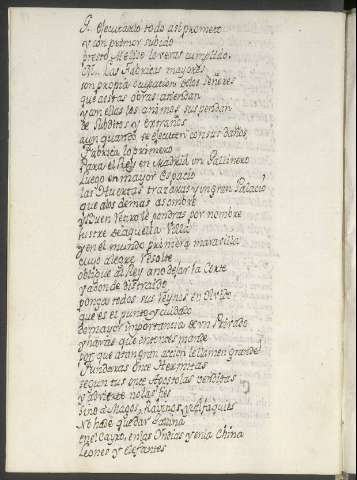 A. ejecutarlo todo asi prometo
y con primor subido
presto Meliso lo veras cumplido.
N. Las Fabricas mayores
son propia ocupacion de los Señores
que a estas obras atiendan
y con ellas los animos suspendan
de subditos y extraños
aun quando se ejecuten con sus daños
Fabrica lo primero
para el Rey en Madrid un Gallinero
luego en mayor espacio
las Huertas trazaras y un gran Palacio
que a los demas asombre
y Buen Retiro le pondras por nombre
lustre de aquella Villa
y en el mundo primera maravilla
cuyo alegre
obligue al Rey a no dejar la Corte
y adonde distraido
ponga todos sus Reynos en Olvido
que es el punto y cuidado
de mayor importancia de un Privado
y haras que entonces mande
por que a tan gran accion le llamen grande
Fundaras once Hermitas
segun tus once Apostolas
y
sino de Magos, Rabinos, y Alfaquies
No ha de quedar
en el Cayro, en las Indias y en la China
Leones y Elefantes